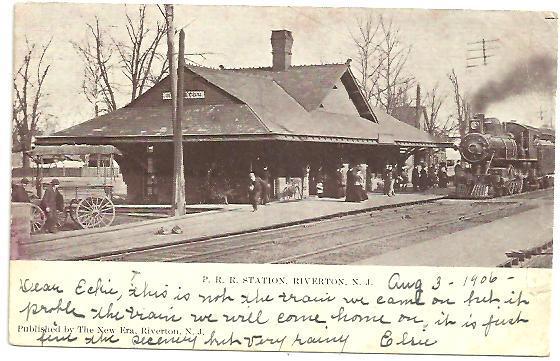 RIVERTON
P. R. R. STATION, RIVERTON, N. J.
Aug 3 - 1906 -
Dear Eckie, This is not the train we came on but it
proble the train we will come home on, it is just
Published by The New Era, Riverton, N. J.
fine the scenery but very rainy Elsie